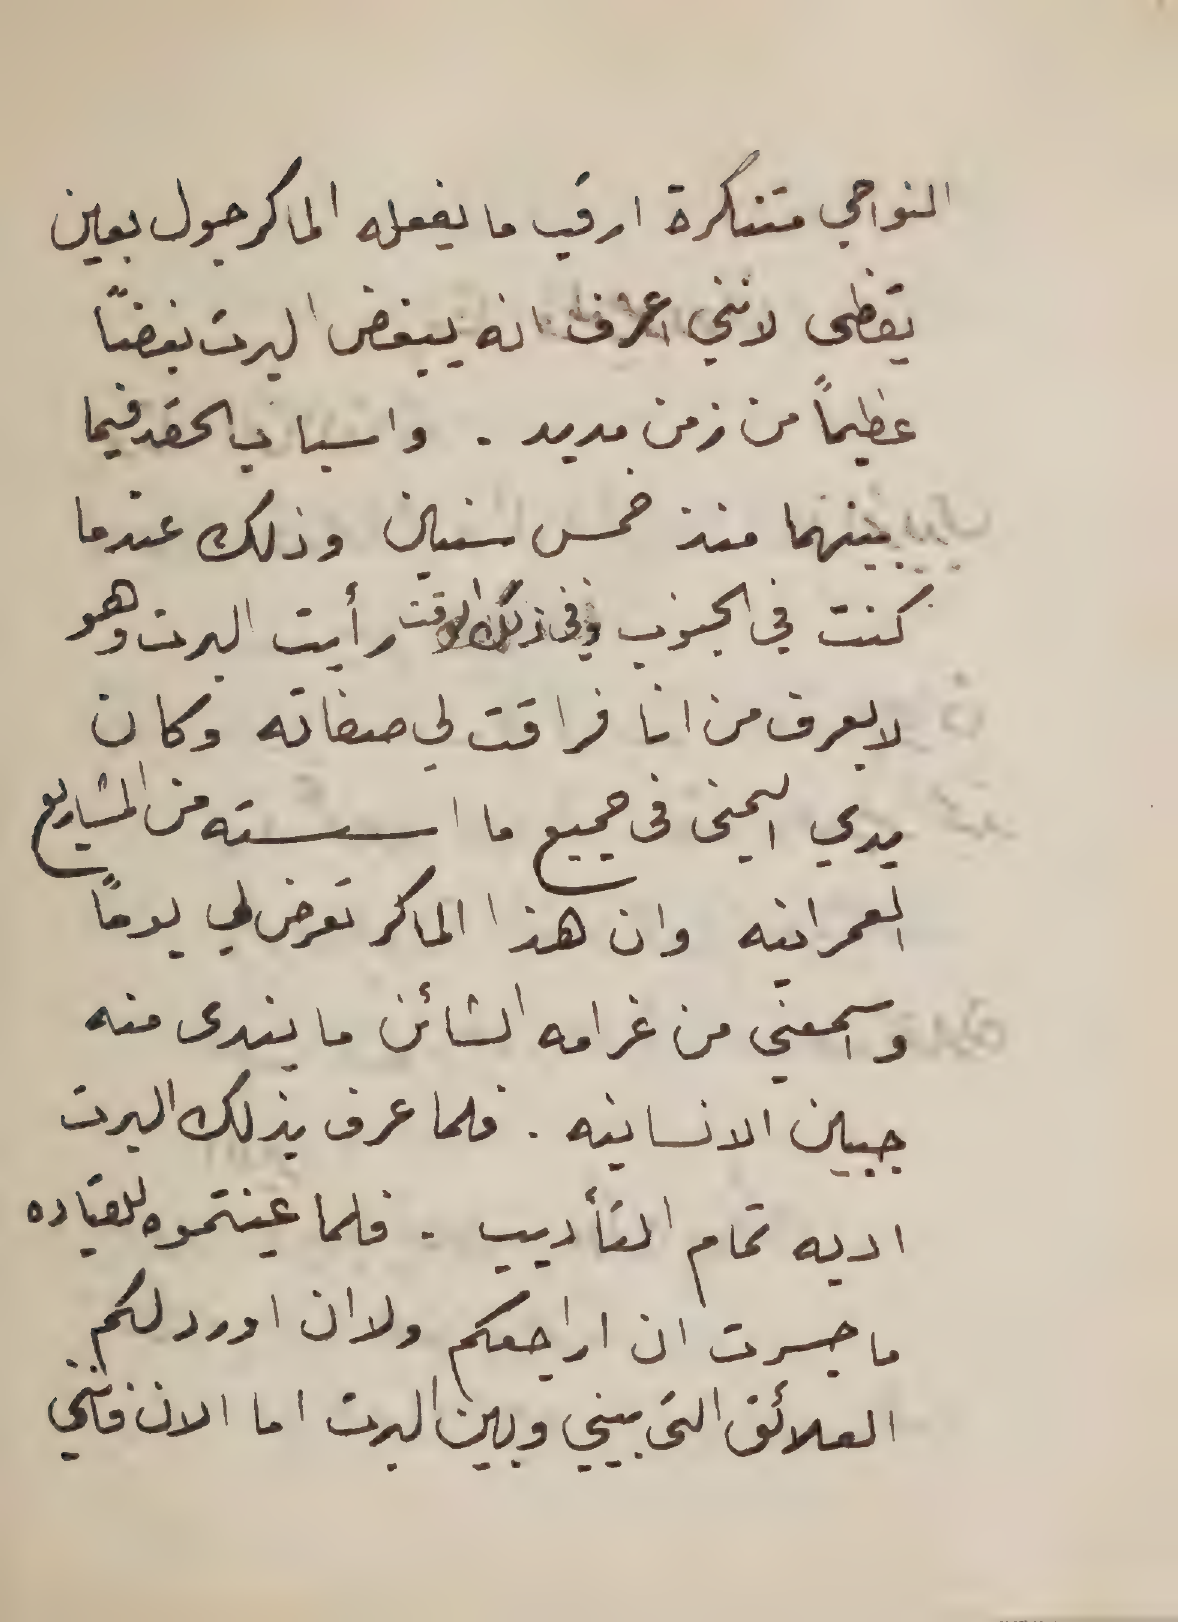 النواحي متنكرة ارقب ما يفعله الماكر جول بعين
يقظى لانني اعرف انه يبغض البرت بغضاً
عظيماً من زمن مديد . واسباب الحقد فيما
بينهما منذ خمس سنين وذلك عندما
كنت في الجنوب وفى ذلك الوقت رأيت البرت وهو
لا يعرف من انا فراقت لي صفاته وكان
يدي اليمنى فى جميع ما اسسته من المشاريع
العمرانيه وان هذا الماكر تعرض لي يوماً
واسمعني من غرامه الشائن ما يندى منه
جبين الانسانيه . فلما عرف بذلك البرت
ادبه تمام التأديب . فلما عينتموه للقياده
ما جسرت ان اراجعكم ولا ان اورد لكم
العلائق التى بيني وبين البرت اما الان فانني